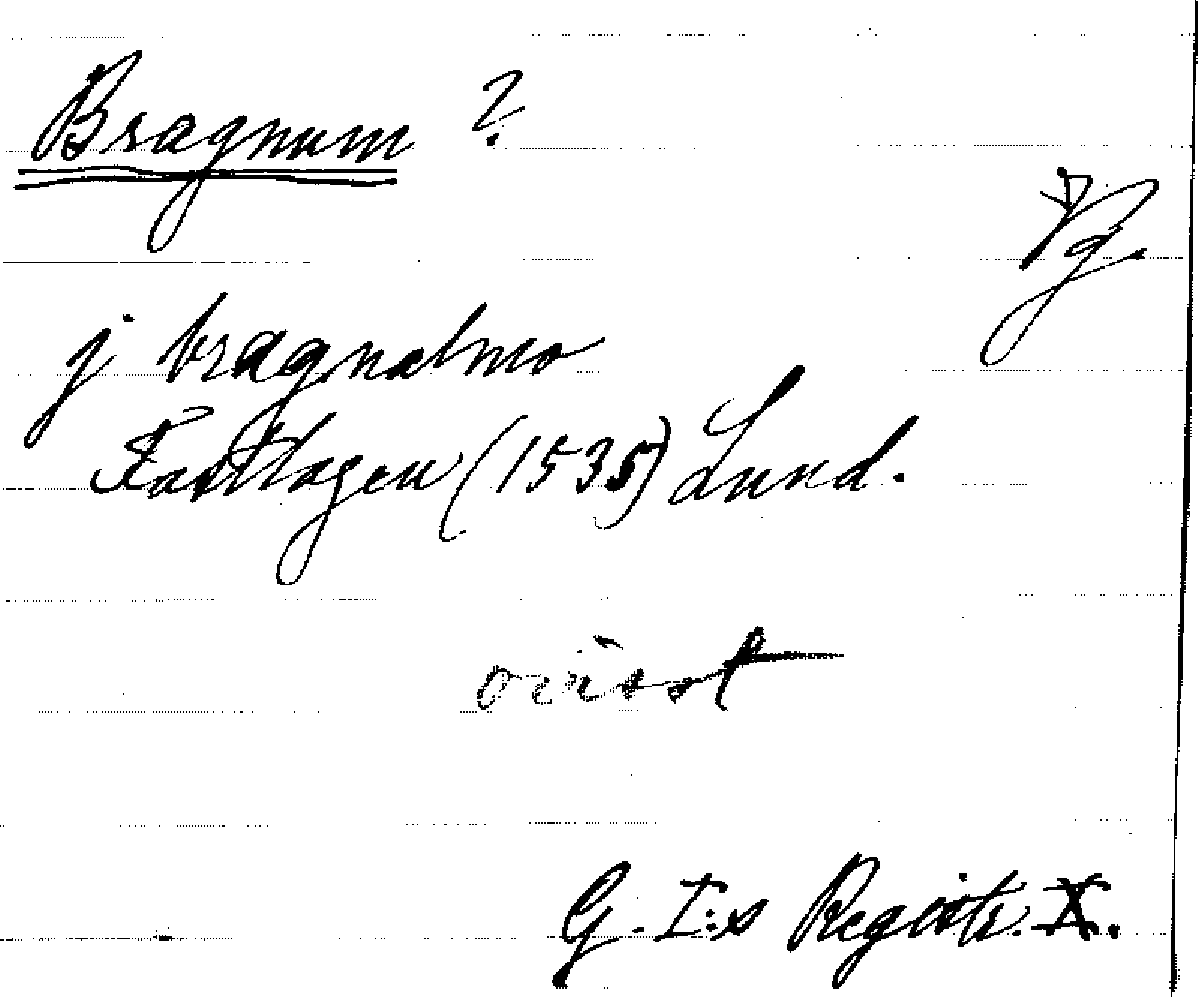 Bragnum ?
Vg.
j bragnalmo
Fastlagen (1535) Lund.
ovisst
G. I:s Registr. X.